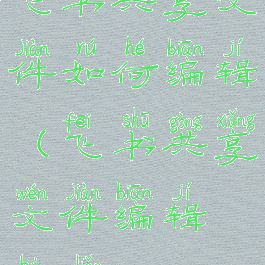 飞书共享文
jiàn rú hé biān jí
件如何编辑
fēi shū gòng xiǎng
（飞书共享
wén jiàn biān jí
文件编辑